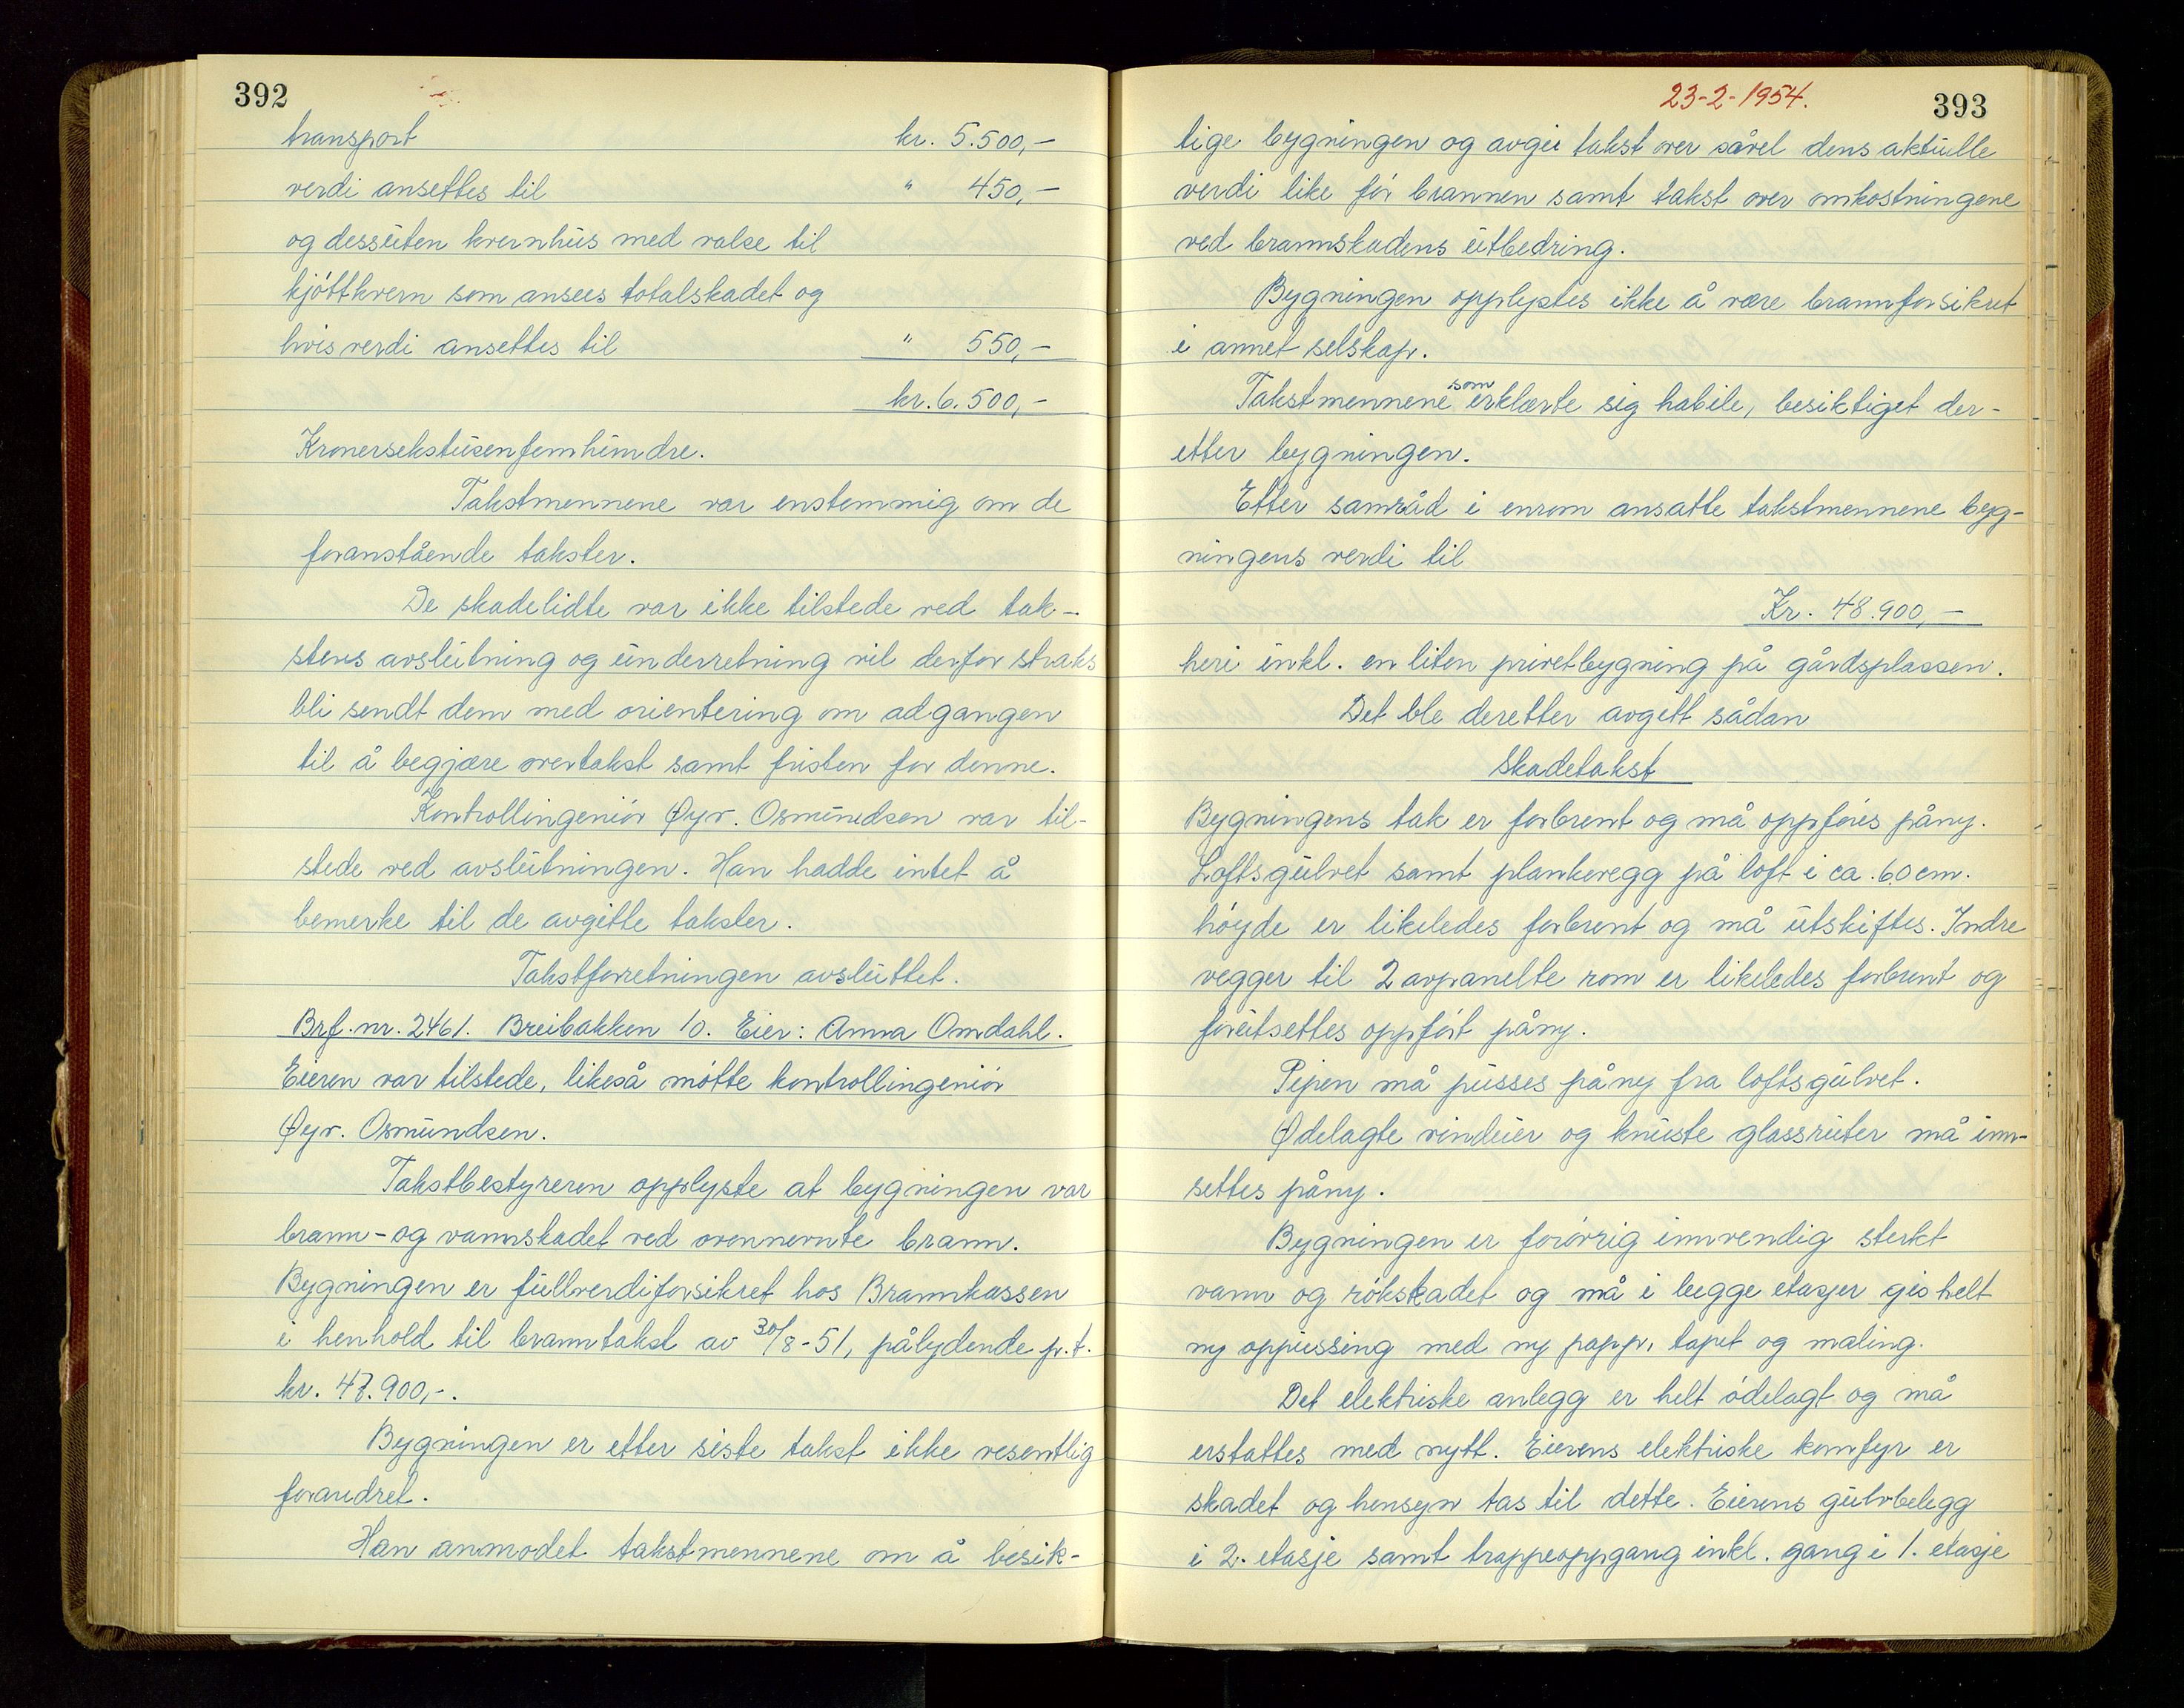 392
transport kr. 5.500,-
verdi ansettes til " 450,-
og dessuten kvernhus med valse til
kjøttkvern som ansees totalskadet og
hvis verdi ansettes til " 550,-
kr. 6.500,-
Kronersekstusenfemhundre.
Takstmennene var enstemmig om de
foranstående takster.
De skadelidte var ikke tilstede ved tak-
stens avslutning og underretning vil derfor straks
bli sendt dem med orientering om adgangen
til å begjære overtakst samt fristen for denne.
Kontrollingeniør Øyv. Osmundsen var til-
stede ved avslutningen. Han hadde intet å
bemerke til de avgitte takster.
Takstforretningen avsluttet.
Brf. nr. 2461. Breibakken 10. Eier: Anna Omdahl.
Eieren var tilstede, likeså møtte kontrollingeniør
Øyv. Osmundsen.
Takstbestyreren opplyste at bygningen var
brann- og vannskadet ved ovennevnte brann.
Bygningen er fullverdiforsikret hos Brannkassen
i henhold til branntakst av 30/8-51, pålydende p.t.
kr. 47.900,-.
Bygningen er etter siste takst ikke vesentlig
forandret.
Han anmodet takstmennene om å besik-
23-2-1954.
393
tige bygningen og avgi takst over såvel dens aktuelle
verdi like før brannen samt takst over omkostningene
ved brannskadens utbedring.
Bygningen opplystes ikke å være brannforsikret
i annet selskap.
Takstmennene som erklærte sig habile, besiktiget der-
etter bygningen.
Etter samråd i enrom ansatte takstmennene byg-
ningens verdi til
Kr. 48.900,-
heri inkl. en liten privetbygning på gårdsplassen.
Det ble deretter avgitt sådan
skadetakst
Bygningens tak er forbrent og må oppføres påny.
Loftsgulvet samt plankevegg på loft i ca. 60 cm.
høyde er likeledes forbrent og må utskiftes. Indre
vegger til 2 avpanelte rom er likeledes forbrent og
forutsettes oppført påny.
Pipen må pusses påny fra loftsgulvet.
Ødelagte vinduer og knuste glassruter må inn-
settes påny.
Bygningen er forøvrig innvendig sterkt
vann og røkskadet og må i begge etasjer gis helt
ny oppussing med ny papp, tapet og maling.
Det elektriske anlegg er helt ødelagt og må
erstattes med nytt. Eierens elektriske komfyr er
skadet og hensyn tas til dette. Eierens gulvbelegg
i 2. etasje samt trappeoppgang inkl. gang i 1. etasje